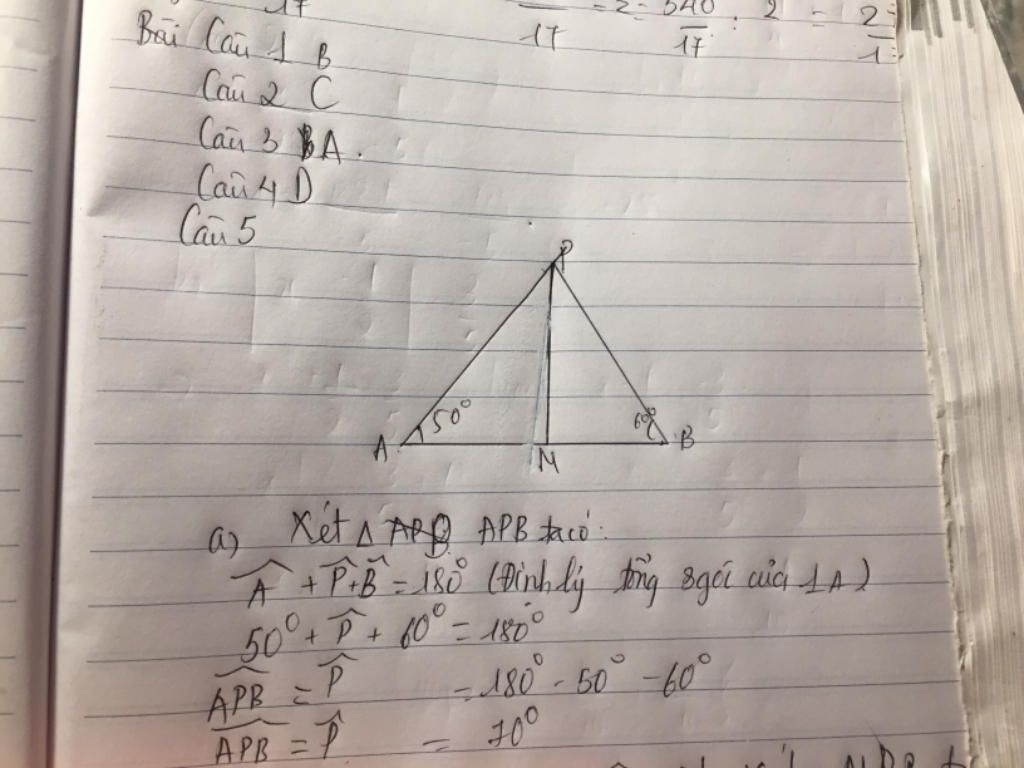 17
17 = 2 = 340/17 : 2 = 2
Bài Câu 1 B
Câu 2 C
Câu 3 A.
Câu 4 D
Câu 5
P
50° 60°
A M B
a) Xét Δ APB ta có:
A + P + B = 180° (Định lý tổng 3 gói của 1 Δ)
50° + P + 60° = 180°
APB = P = 180° - 50° - 60°
APB = P = 70°